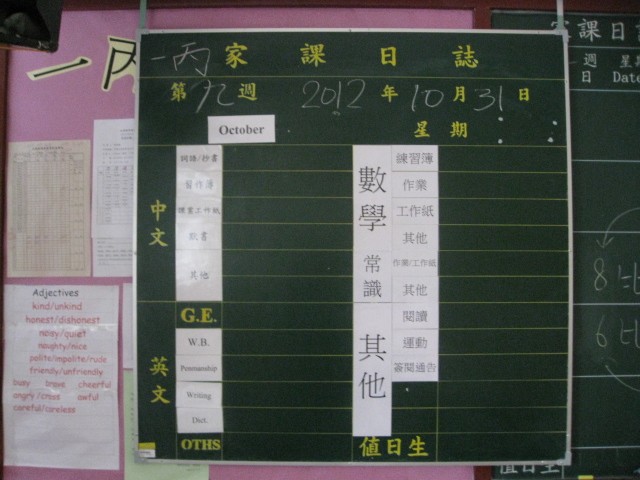 一丙家課日誌
第九週 2012年10月31日
October
星期
中文
詞語/抄書
習作簿
默書
其他
英文
G.E.
W.B.
Penmanship
Writing
Dict.
OTHS
數學
練習簿
作業
工作紙
其他
常識
作業/工作紙
其他
其他
閱讀
運動
簽閱通告
值日生
一丙
Adjectives
kind/unkind
honest/dishonest
noisy/quiet
naughty/nice
polite/impolite/rude
friendly/unfriendly
busy brave cheerful
angry/cross awful
careful/careless
家課日誌
週 星期
日 Date
8
6
值日生